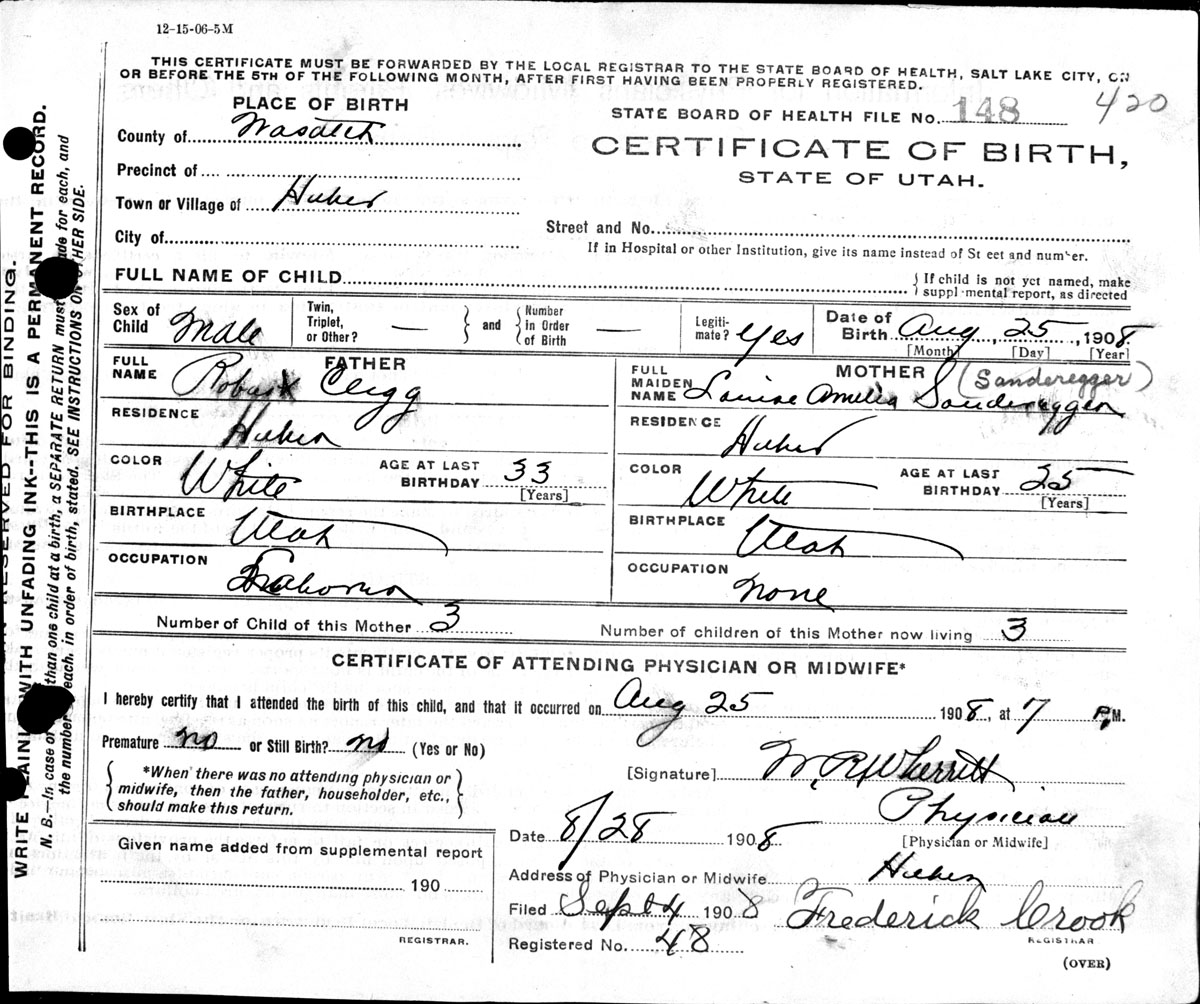 12-15-06-5M
THIS CERTIFICATE MUST BE FORWARDED BY THE LOCAL REGISTRAR TO THE STATE BOARD OF HEALTH, SALT LAKE CITY, ON
OR BEFORE THE 5TH OF THE FOLLOWING MONTH, AFTER FIRST HAVING BEEN PROPERLY REGISTERED.
PLACE OF BIRTH
County of Wasatch
Precinct of
Town or Village of Heber
City of
STATE BOARD OF HEALTH FILE No. 148 420
CERTIFICATE OF BIRTH,
STATE OF UTAH.
Street and No.
If in Hospital or other Institution, give its name instead of Street and number.
FULL NAME OF CHILD
If child is not yet named, make
supplemental report, as directed
Sex of Child Male
Twin, Triplet, or Other? — and Number in Order of Birth —
Legitimate? Yes
Date of Birth Aug, 25, 1908
[Month] [Day] [Year]
FATHER
FULL NAME Robert Clegg
RESIDENCE Heber
COLOR White AGE AT LAST BIRTHDAY 33
[Years]
BIRTHPLACE Utah
OCCUPATION
MOTHER (Sanderegger)
FULL MAIDEN NAME Louise Amelia Sandereggen
RESIDENCE Heber
COLOR White AGE AT LAST BIRTHDAY 25
[Years]
BIRTHPLACE Utah
OCCUPATION None
Number of Child of this Mother 3
Number of children of this Mother now living 3
CERTIFICATE OF ATTENDING PHYSICIAN OR MIDWIFE*
I hereby certify that I attended the birth of this child, and that it occurred on Aug 25 1908, at 7 P.M.
Premature no or Still Birth? no (Yes or No)
*When there was no attending physician or
midwife, then the father, householder, etc.,
should make this return.
[Signature] W R Wherritt
Physician
[Physician or Midwife]
Date 8/28 1908
Address of Physician or Midwife Heber
Filed Sept 4 1908 Frederick Crook
REGISTRAR
Registered No. 48
(OVER)
Given name added from supplemental report
190
REGISTRAR.
RESERVED FOR BINDING.
WRITE PLAINLY WITH UNFADING INK--THIS IS A PERMANENT RECORD.
N. B.—In case of than one child at a birth, a SEPARATE RETURN must made for each, and
the number each, in order of birth, stated. SEE INSTRUCTIONS ON OTHER SIDE.